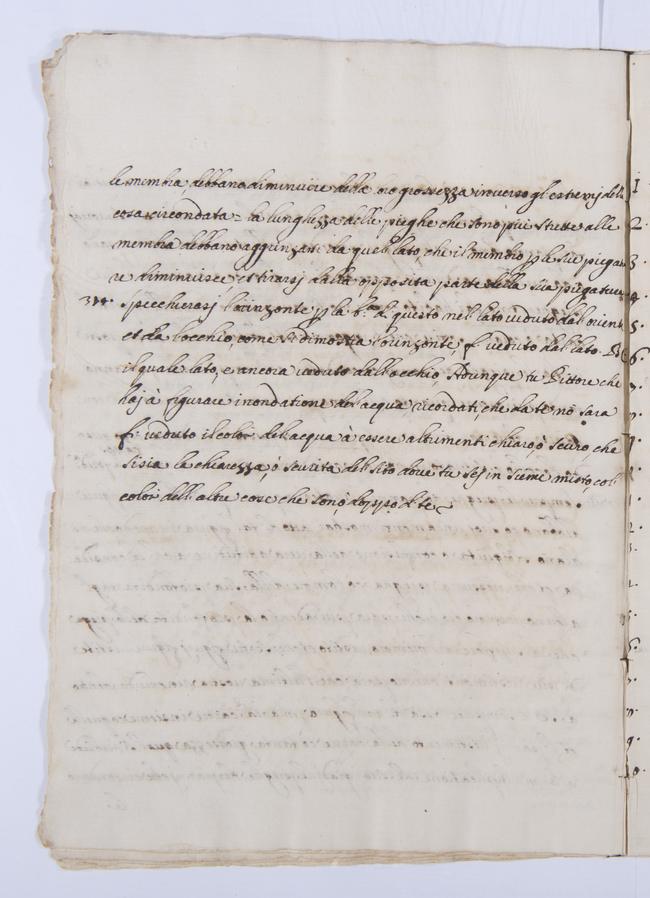 le membra, debbano diminuire della loro grossezza inverso gl'estremj della
cosa circondata = la lunghezza delle pieghe che sono piu strette alle
membra debbano aggrinzarsi da quel lato, che il membro p le sue piegatu
re diminuisce et tirarsj dalla opposita parte della sua piegatura
specchierasj l'orizonte p la di questo nel lato veduto dall'orizonte
et da l'occhio, come si dimostra l'orizonte, f. veduto dal lato. B.C.
il quale lato, e ancora veduto dall'occhio, Adunque tu Pittore che
haj à figurare inondatione del acqua ricordati, che da te nõ sara
veduto il color del acqua à essere altrimenti chiaro, ò scuro che
si sia la chiarezza, ò scurità del sito dove tu sej in sieme misto, col
color dell'altre cose che sono doppo di te
1
2.
3
4
5
6
9
10.